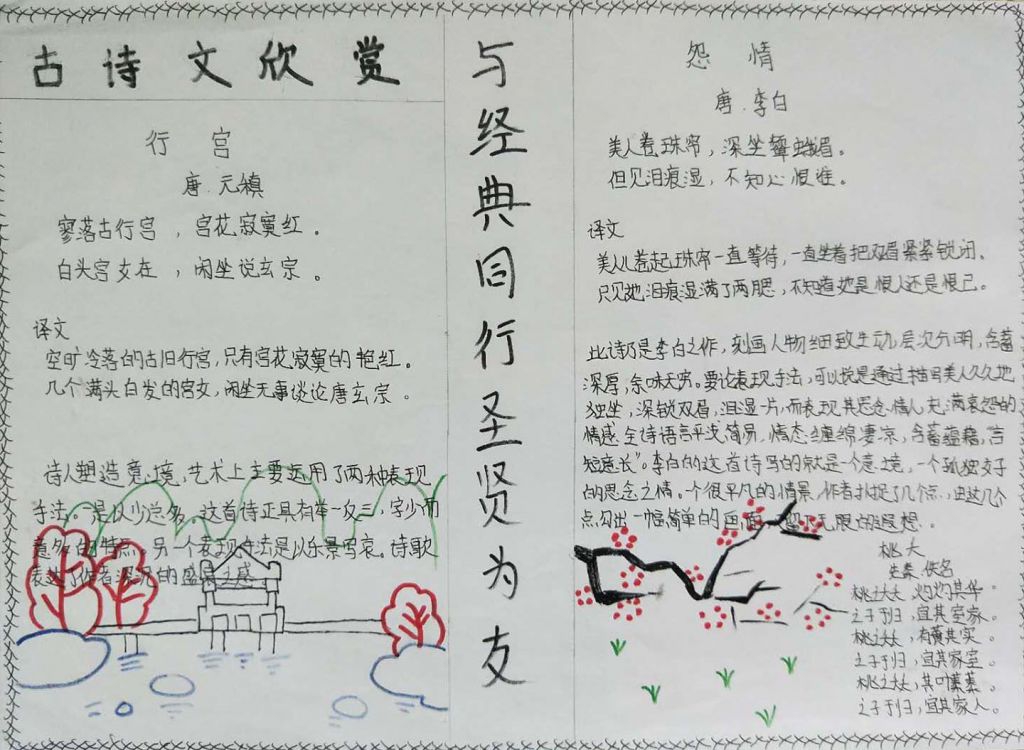 古诗文欣赏
行宫
唐.元稹
寥落古行宫，宫花寂寞红。
白头宫女在，闲坐说玄宗。
译文
空旷冷落的古旧行宫，只有宫花寂寞的艳红。
几个满头白发的宫女，闲坐无事谈论唐玄宗。
诗人塑造意境，艺术上主要运用了两种表现
手法。一是以少总多。这首诗正具有举一反三，字少而
意多的特点。另一个表现手法是以乐景写哀。诗歌
表达了作者深沉的盛衰之感
与经典同行圣贤为友
怨情
唐.李白
美人卷珠帘，深坐颦蛾眉。
但见泪痕湿，不知心恨谁。
译文
美人儿卷起珠帘一直等待，一直坐着把双眉紧紧锁闭。
只见她泪痕湿满了两腮，不知道她是恨人还是恨己。
此诗乃是李白之作，刻画人物细致生动，层次分明，含蓄
深厚，余味无穷。要论表现手法，可以说是通过描写美人久久地
独坐，深锁双眉，泪湿一片，而表现其思念情人充满哀怨的
情感 全诗语言平浅简易，情态缠绵凄凉，含蓄蕴藉，言
短意长”。李白的这首诗写的就是一个意境，一个孤独女子
的思念之情。个很平凡的情景，作者扑捉了几个点，由这几个
点勾出一幅简单的画面 留了无限的遐想.
桃夭
先秦.佚名
桃之夭夭 灼灼其华。
之子于归，宜其室家。
桃之夭夭，有蕡其实。
之子于归，宜其家室。
桃之夭夭，其叶蓁蓁。
之子于归，宜其家人。